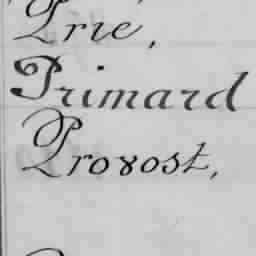 Prie,
Primard
Provost,